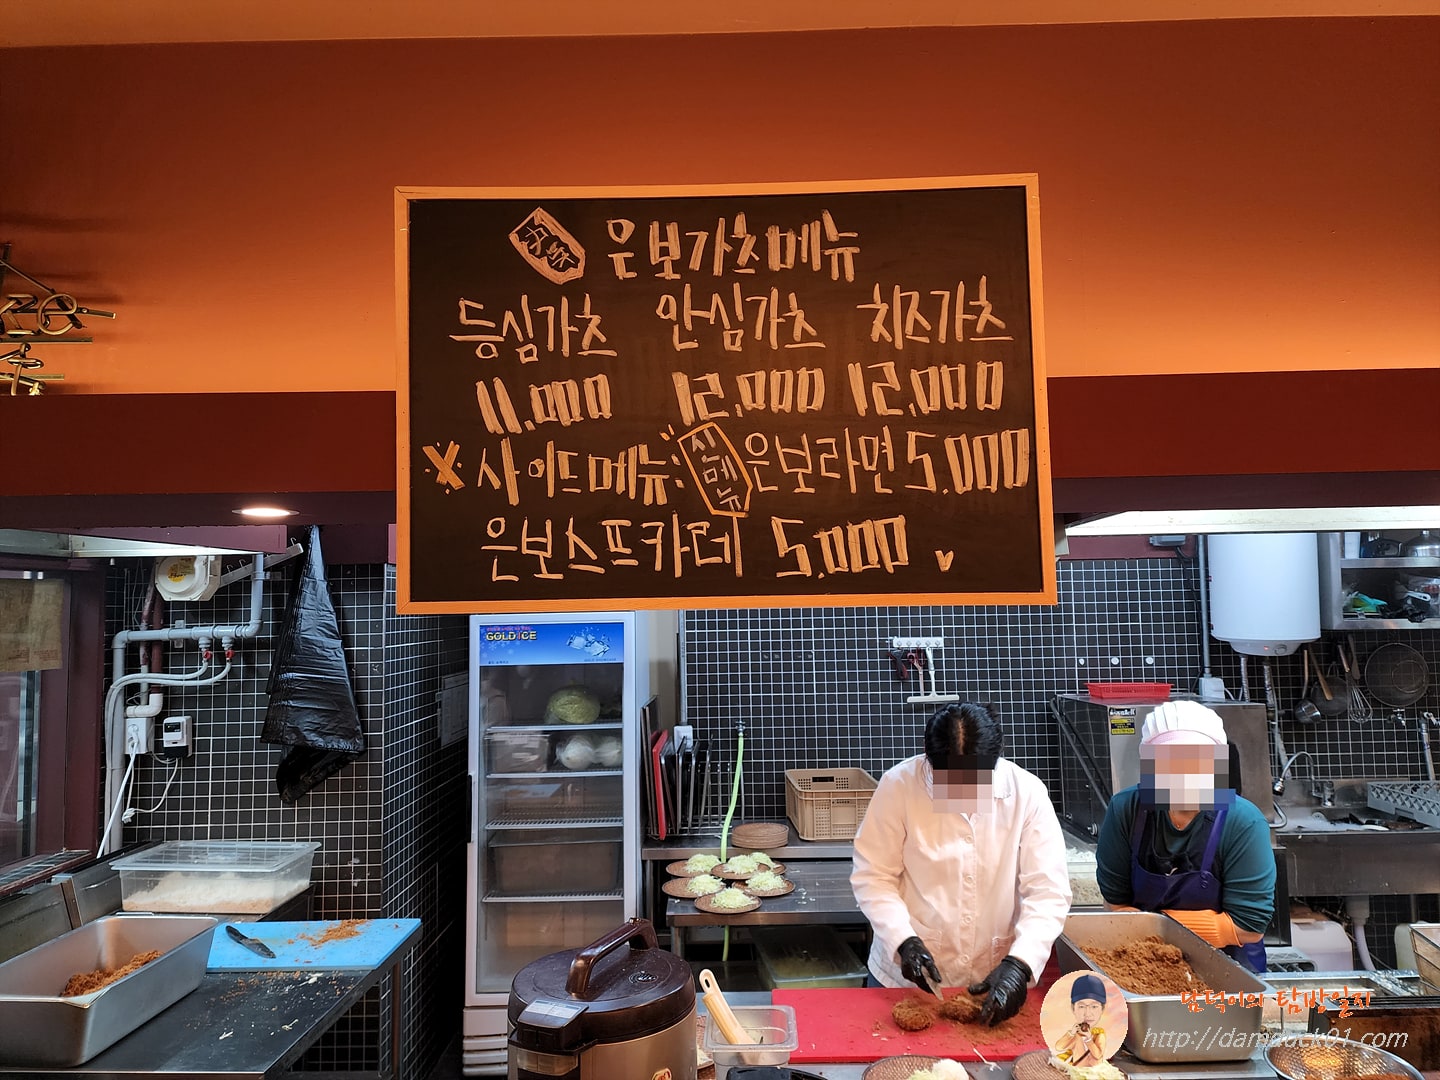 은보가츠메뉴
등심가츠 안심가츠 치즈가츠
11,000 12,000 12,000
사이드메뉴: 신메뉴 은보라면 5,000
은보스프카레 5,000
GOLD ICE
담덕이의 탐방일지
http://damduck01.com